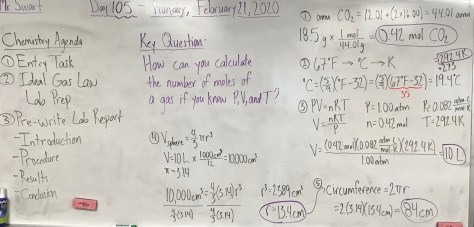 Mr Swart
Day 105 - Thursday, February 21, 2020
Chemistry Agenda
① Entry Task
② Ideal Gas Law
Lab Prep
③ Pre-write Lab Report
- Introduction
- Procedure
- Results
- Conclusion
Key Question:
How can you calculate
the number of moles of
a gas if you know P,V, and T?
④ Vsphere = 4/3 πr³
V=10L × 1000cm³/1L = 10000cm³
π = 3.14
10,000cm³ = 4/3 (3.14) r³
4/3 (3.14) 4/3 (3.14)
r³ = 2389 cm³
r = 13.4cm
① amu CO₂ = 12.01 + (2×16.00) = 44.01 amu
18.5 g × 1 mol/44.01g = 0.42 mol CO₂
② 67°F → °C → K
°C = (5/9)(°F-32) = (5/9)(67°F-32) = 19.4°C
35
292.4K
+273
③ PV=nRT P=1.00atm R=0.082 atm·L/mol·K
V = nRT/P n=0.42mol T=292.4K
V = (0.42mol)(0.082 atm·L/mol·K)(292.4K)/1.00atm = 10 L
⑤ Circumference = 2πr
= 2(3.14)(13.4cm) = 84cm